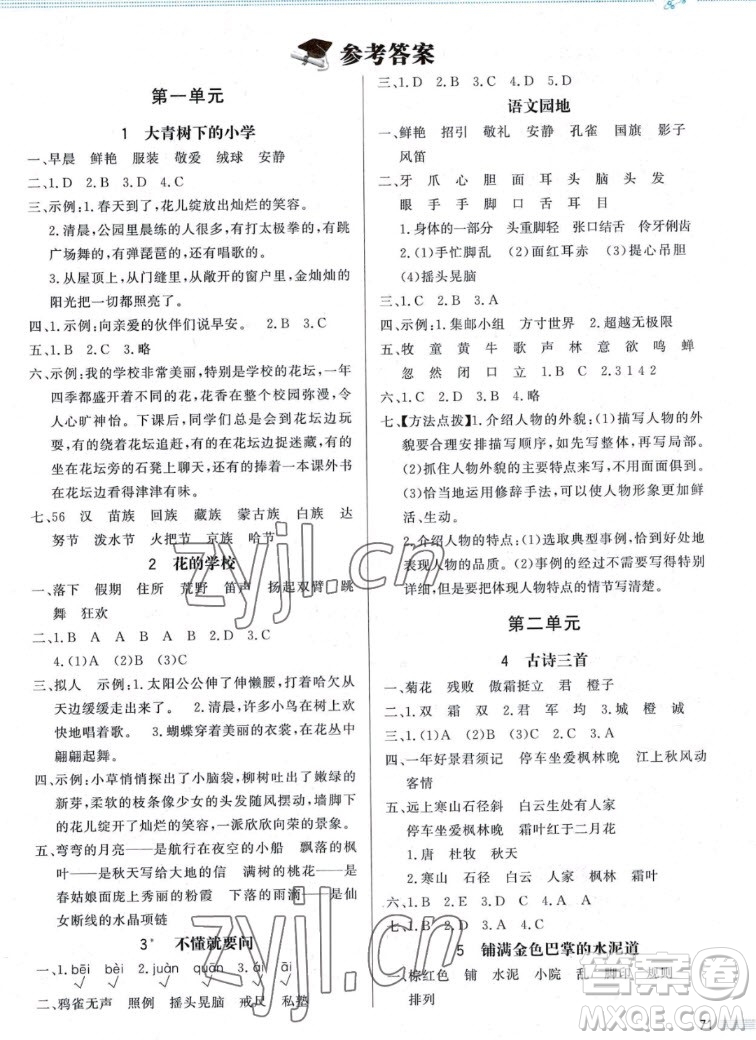 参考答案
第一单元
1 大青树下的小学
一、早晨 鲜艳 服装 敬爱 绒球 安静
二、1.D 2.B 3.D 4.C
三、示例:1.春天到了,花儿绽放出灿烂的笑容。
2.清晨,公园里晨练的人很多,有打太极拳的,有跳
广场舞的,有弹琵琶的,还有唱歌的。
3.从屋顶上,从门缝里,从敞开的窗户里,金灿灿的
阳光把一切都照亮了。
四、1.示例:向亲爱的伙伴们说早安。 2.B
五、1.B 2.C 3.略
六、示例:我的学校非常美丽,特别是学校的花坛,一年
四季都盛开着美丽的花,花香在整个校园弥漫,令
人心旷神怡。下课后,同学们有的在花坛边玩
耍,有的绕着花坛追赶,有的在花坛边捉迷藏,有的
在花坛旁的石凳上聊天,还有的捧着一本课外书
在花坛边看得津津有味。
七、56 汉 苗族 回族 藏族 蒙古族 白族 达
努节 泼水节 火把节 京族 哈节
2 花的学校
一、落下 假期 住所 荒野 笛声 扬起双臂 跳
舞 狂欢
二、1.D 2.C 3.B
4.(1)A (2)B (3)A
三、拟人 示例:1.太阳公公伸了伸懒腰,打着哈欠从
天边缓缓走出来了。 2.清晨,许多小鸟在树上欢
快地唱着歌。 3.蝴蝶穿着美丽的衣裳,在花丛中
翩翩起舞。
四、示例:小草悄悄探出了小脑袋,柳树吐出了嫩绿的
新芽,柔软的枝条像少女的头发随风摆动,墙脚下
的花儿绽出了灿烂的笑容,一派欣欣向荣的景象。
五、弯弯的月亮——是航行在夜空的小船 飘落的枫
叶——是秋天写给大地的信 满树的桃花——是
春姑娘面庞上秀丽的粉霞 下落的雨滴——是仙
女断线的水晶项链
3* 不懂就要问
一、1.bēi bèi√ 2.juàn√ quān 3.ái√ āi
二、鸦雀无声 照例 摇头晃脑 戒尺 私塾
三、1.D 2.B 3.C 4.D 5.D
语文园地
一、鲜艳 招引 敬礼 安静 孔雀 国旗 影子
风笛
二、牙 爪 心 胆 面 耳 头 脑 头 发
眼 手 手 脚 口 舌 耳 目
1.身体的一部分 头重脚轻 张口结舌 伶牙俐齿
2.(1)手忙脚乱 (2)面红耳赤 (3)提心吊胆
(4)摇头晃脑
三、1.C 2.B 3.A
四、示例:1.集邮小组 方寸世界 2.超越无极限
五、牧 童 黄 牛 歌 声 林 樾 意 欲 鸣 蝉
忽 然 闭 口 立 1.C 2.3 1 4 2
六、1.C 2.B 3.D 4.略
七、【方法点拨】1.介绍人物的外貌:(1)描写人物的外
貌要合理安排描写顺序,如先写整体,再写局部。
(2)抓住人物外貌的主要特点来写,不用面面俱到。
(3)恰当地运用修辞手法,可以使人物形象更加鲜
活、生动。
2.介绍人物的特点:(1)选取典型事例,恰到好处地
表现人物的品质。(2)事例不一定要描写得特别
详细,但一定要把体现人物特点的情节写清楚。
第二单元
4 古诗三首
一、菊花 残败 傲霜挺立 君 橙子
二、1.双 霜 2.君 军 均 3.城 橙 成
三、1.(1)A (2)C 2.(1)B (2)C 3.A
四、一年好景君须记 停车坐爱枫林晚 江上秋风动
客情
五、远上寒山石径斜 白云生处有人家
停车坐爱枫林晚 霜叶红于二月花
1.唐 杜牧 秋天
2.寒山 石径 白云 人家 枫林
六、1.B 2.D 3.C 4.B
七、1.(1)B (2)B (3)A 2.C
5 铺满金色巴掌的水泥道
一、棕红色 铺 水泥 小院 乱 脚印 规则
排列
71
zyjl.cn
zyjl.cn
答案圈
MXQE.COM